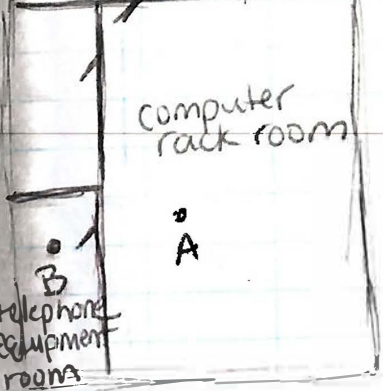 computer
rack room
A
B
telephone
equipment
room